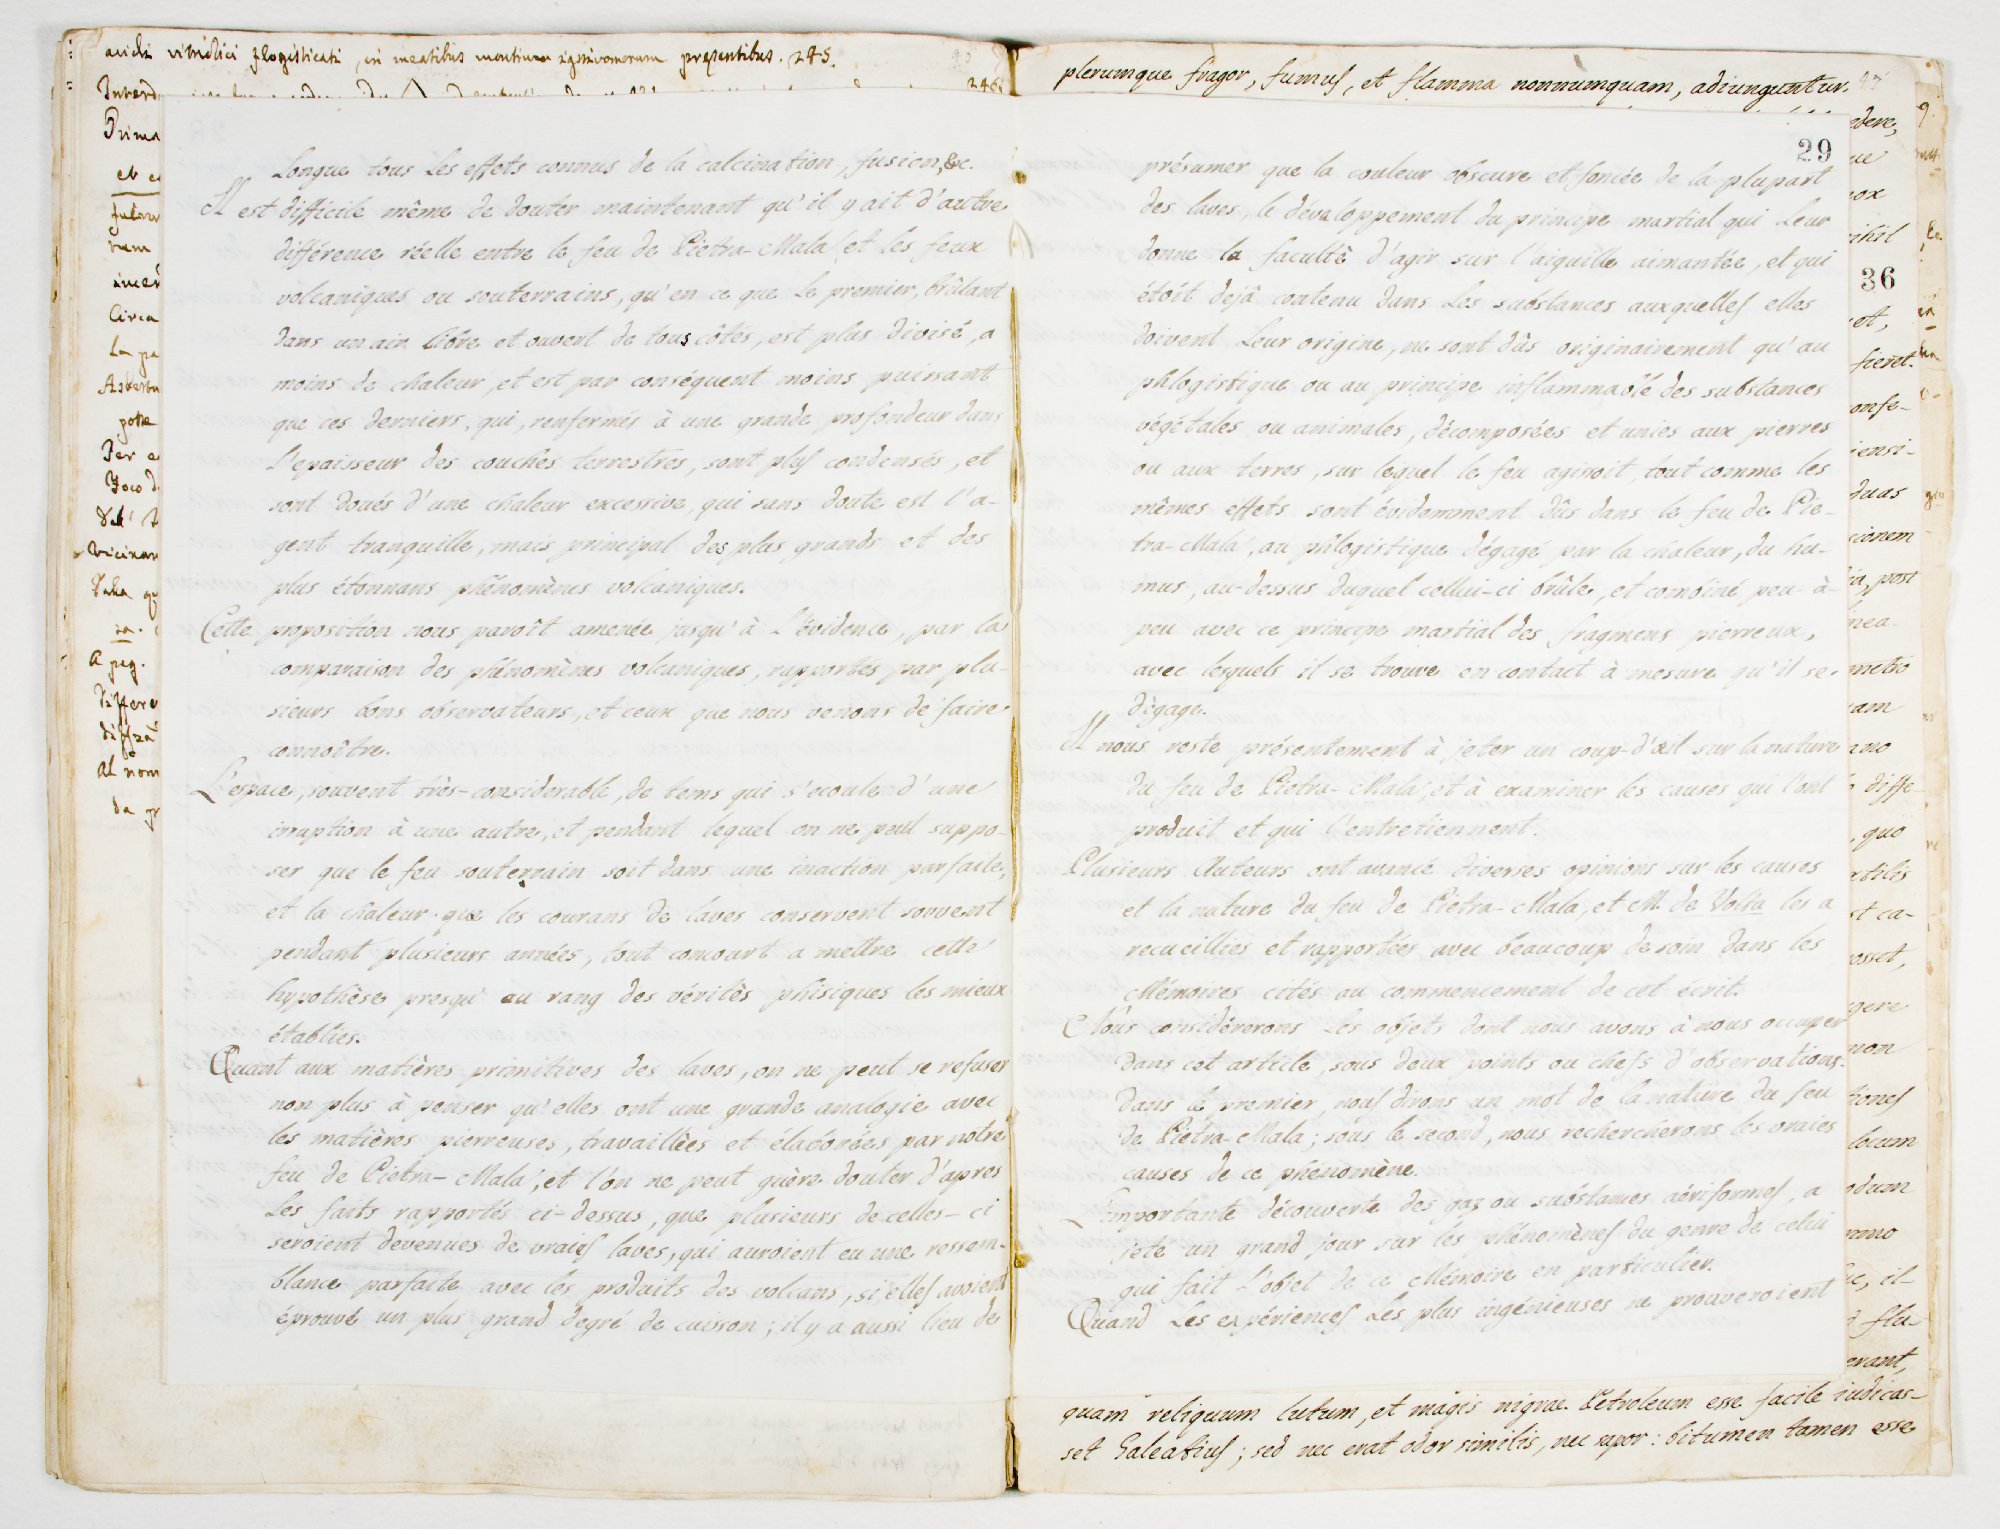 acidi vitriolici flogisticati, in meatibus montium ignivomorum presentibus. 245.
246
Longue tous Les effets connus de la calcination, fusion, &c.
Il est difficile même de douter maintenant qu'il y ait d'autre
différence réelle entre le feu de Pietra-Mala, et les feux
volcaniques ou souterrains, qu'en ce que Le premier, brûlant
dans un air libre et ouvert de tous côtés, est plus divisé, a
moins de chaleur, et est par conséquent moins puissant
que ces derniers, qui, renfermés à une grande profondeur dans
L'epaisseur des couches terrestres, sont plus condensés, et
sont doués d'une chaleur excessive, qui sans doute est l'a-
gent tranquille, mais principal des plus grands et des
plus étonnans phénomènes volcaniques.
Cette proposition nous paroît amenée jusqu'à L'évidence, par la
comparaison des phénomènes volcaniques, rapportés par plu-
sieurs bons observateurs, et ceux que nous venons de faire
connoître.
L'espace, souvent très-considerable, de tems qui s'ecoule d'une
irruption à une autre, et pendant lequel on ne peut suppo-
ser que le feu souterrain soit dans une inaction parfaite,
et la chaleur que les courans de laves conservent souvent
pendant plusieurs années, tout concourt a mettre cette
hypothèse presqu'au rang des vérités phisiques les mieux
établies.
Quant aux matières primitives des laves, on ne peut se refuser
non plus à penser qu'elles ont une grande analogie avec
les matières pierreuses, travaillées et élaborées par notre
feu de Pietra-Mala; et l'on ne peut guère douter d'apres
Les faits rapportés ci-dessus, que plusieurs de celles-ci
seroient devenues de vraies laves, qui auroient eu une ressem-
blance parfaite avec les produits des volcans, si elles avoient
éprouvé un plus grand degré de cuisson; il y a aussi lieu de
plerumque fragor, fumus, et flamma nonnumquam, adiunguntur.
29
présumer que la couleur obscure et foncée de la plupart
des laves, le développement du principe martial qui Leur
donne la faculté d'agir sur l'aiguille aimantée, et qui
étoit dejà contenu dans Les substances auxquelles elles
doivent Leur origine, ne sont dûs originairement qu'au
phlogistique ou au principe inflammable des substances
végétales ou animales, décomposées et unies aux pierres
ou aux terres, sur lequel le feu agiroit, tout comme les
mêmes effets sont évidemment dûs dans le feu de Pie-
tra-Mala, au phlogistique dégagé par la chaleur, du hu-
mus, au-dessus duquel cellui-ci brûle, et combiné peu-à-
peu avec ce principe martial des fragmens pierreux,
avec lesquels il se trouve en contact à mesure qu'il se
dégage.
Il nous reste présentement à jeter un coup-d'œil sur la nature
du feu de Pietra-Mala, et à examiner les causes qui l'ont
produit et qui l'entretiennent.
Plusieurs Auteurs ont avancé diverses opinions sur les causes
et la nature du feu de Pietra-Mala, et M. de Volta les a
recueillies et rapportées avec beaucoup de soin dans les
Mémoires cités au commencement de cet écrit.
Nous considérerons Les objets dont nous avons à nous occuper
dans cet article, sous deux points ou chefs d'observations.
Dans le premier, nous dirons un mot de la nature du feu
de Pietra-Mala; sous le second, nous rechercherons les vraies
causes de ce phénomène.
L'importante découverte des gaz ou substances aériformes, a
jeté un grand jour sur les phénomènes du genre de celui
qui fait L'objet de ce Mémoire en particulier.
Quand Les expériences Les plus ingénieuses ne prouveroient
36
quam reliquum lutum, et magis nigrae. Petroleum esse facile iudicas-
set Galeatius; sed nec erat odor similis, nec sapor: bitumen tamen esse